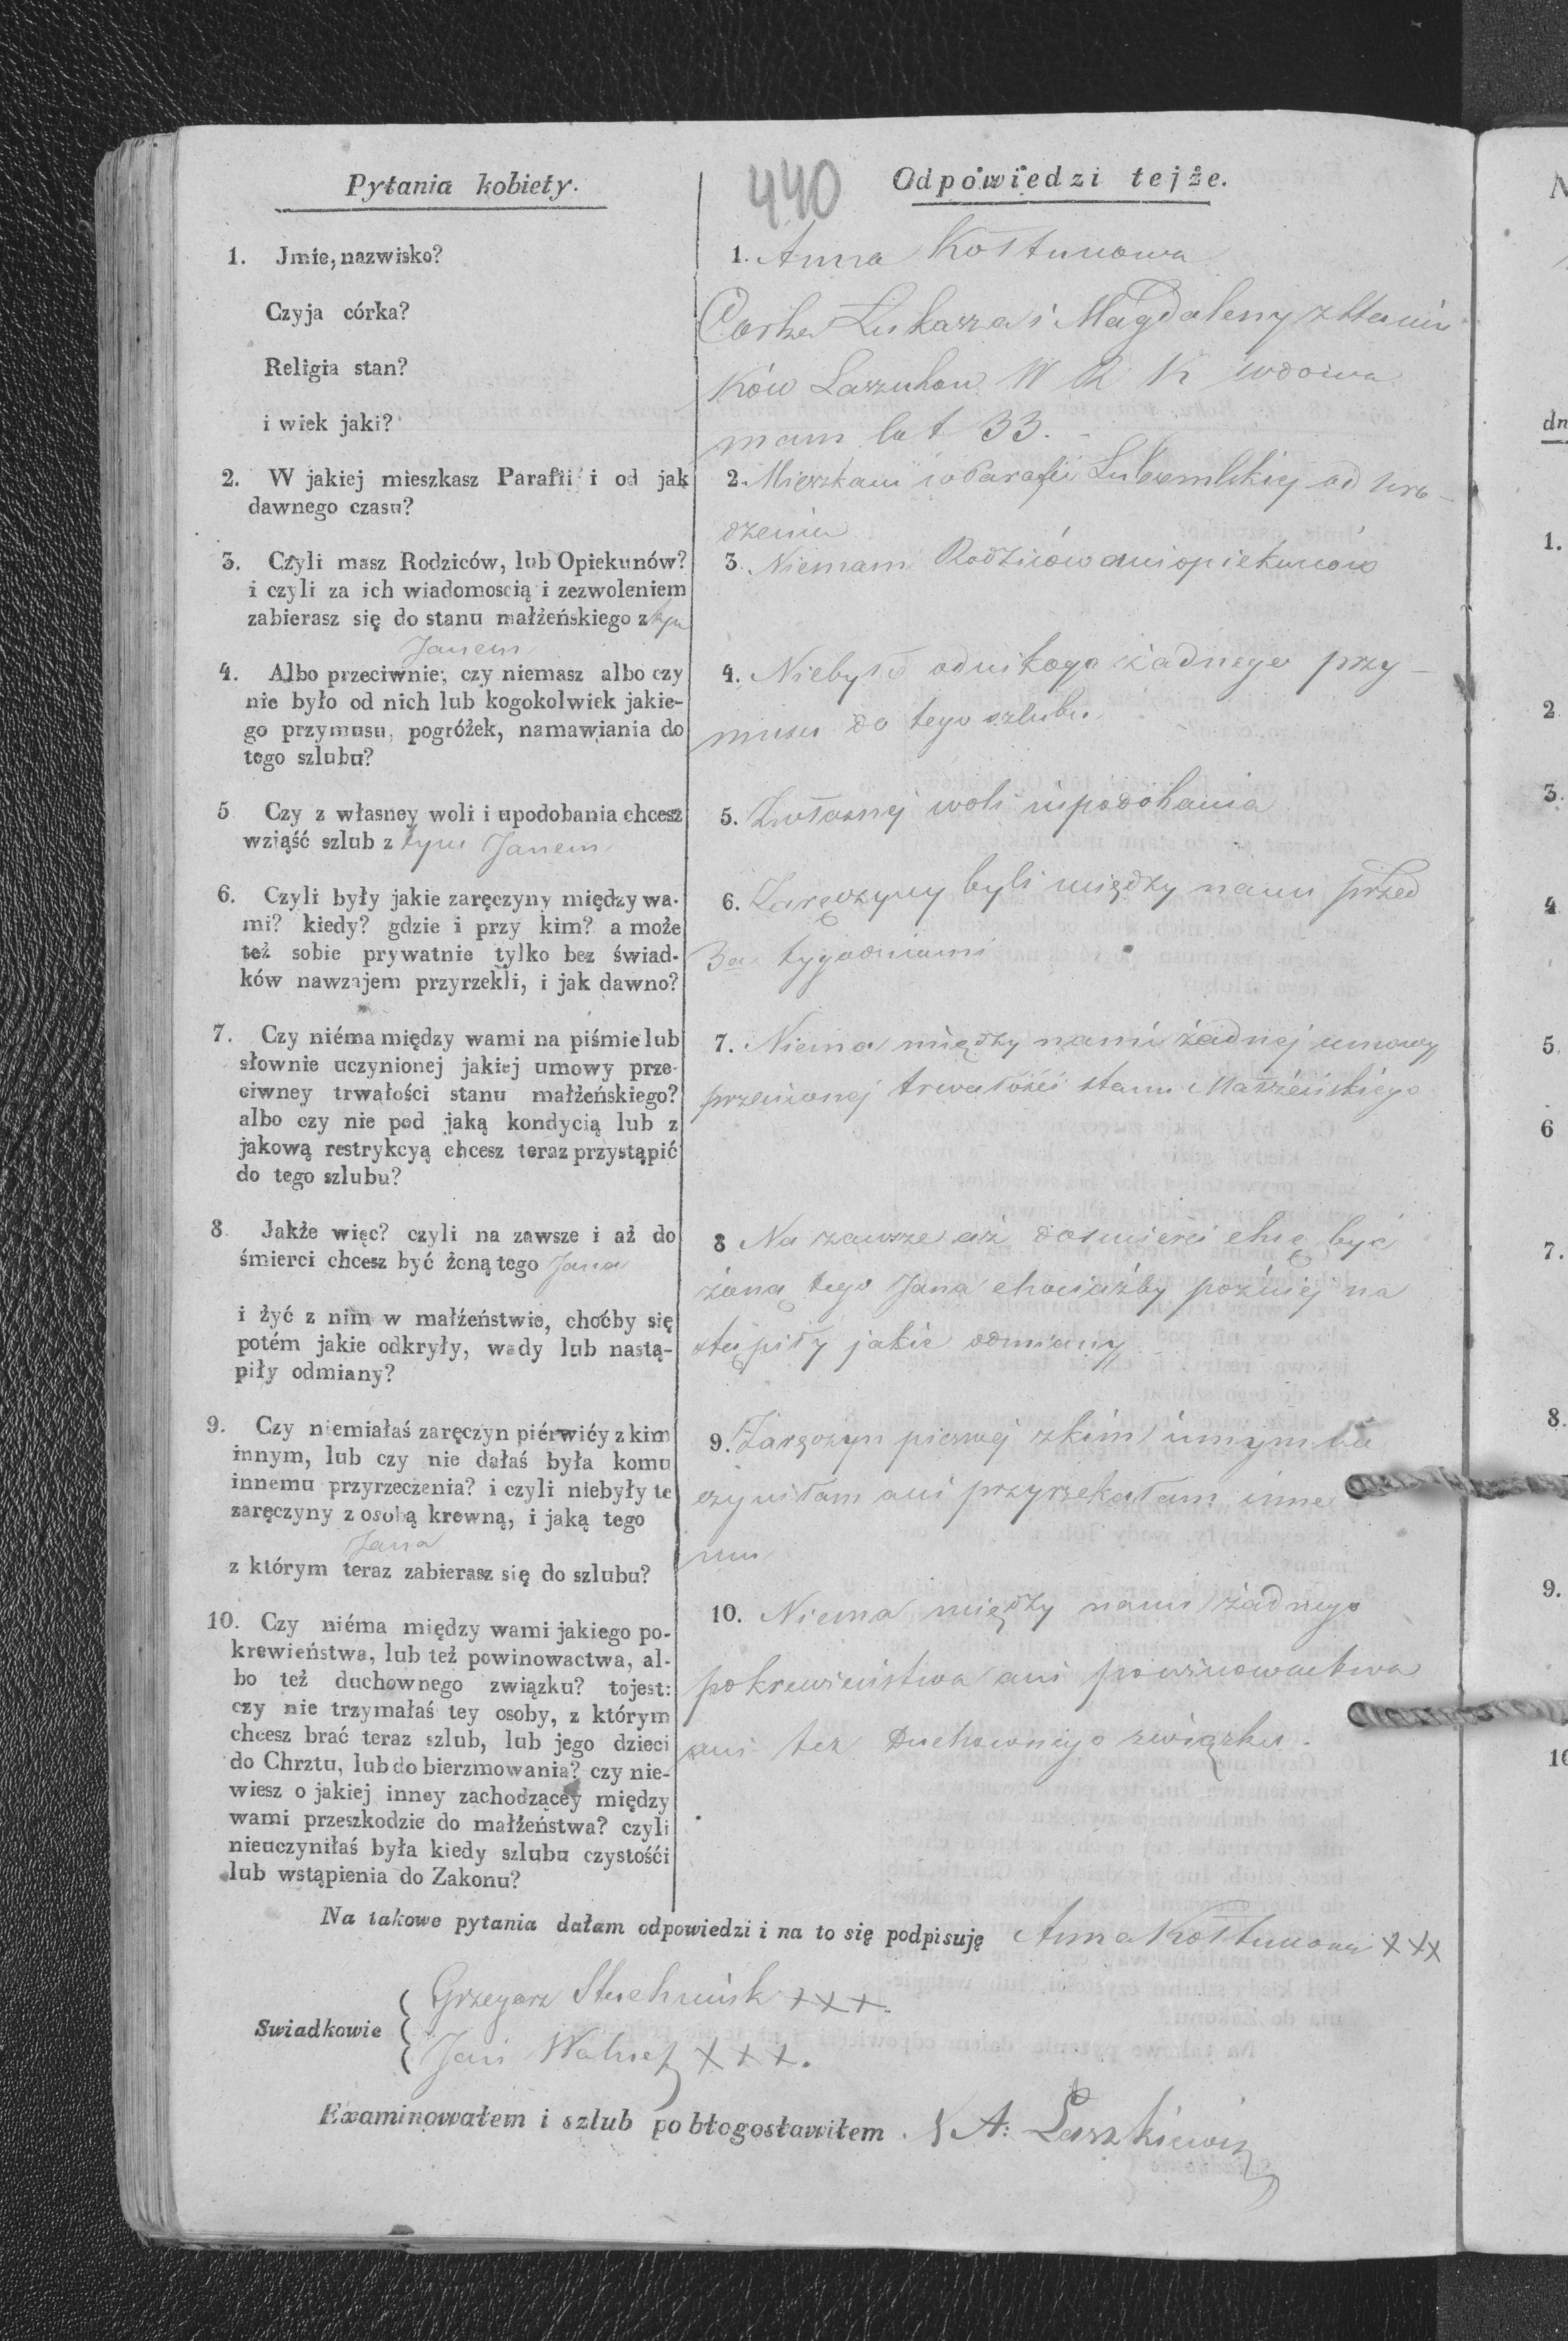 Pytania kobiety.
440
Odpowiedzi tejże.
1. Jmie, nazwisko?
Czyja córka?
Religia stan?
i wiek jaki?
1. Anna Kostunowa
Corka Lukasza i Magdaleny z
ków W R K wdowa
mam lat 33.
2. W jakiej mieszkasz Parafii i od jak
dawnego czasu?
2. Mieszkam w Parafii Lubomlskiej od uro-
dzenia
3. Czyli masz Rodziców, lub Opiekunów?
i czyli za ich wiadomoscią i zezwoleniem
zabierasz się do stanu małżeńskiego z tym
Janem
3. Niemam Rodziców ani opiekunow
4. Albo przeciwnie, czy niemasz albo czy
nie było od nich lub kogokolwiek jakie-
go przymusu, pogróżek, namawiania do
tego szlubu?
4. Niebyło odnikogo żadnego przy-
musu do tego szlubu
5 Czy z własney woli i upodobania chcesz
wziąść szlub z tym Janem
5. Zwłasnej woli iupodobania
6. Czyli były jakie zaręczyny między wa-
mi? kiedy? gdzie i przy kim? a może
też sobie prywatnie tylko bez świad-
ków nawzajem przyrzekli, i jak dawno?
6. Zaręczyny byli między nami przed
3a tygodniami
7. Czy niéma między wami na piśmie lub
słownie uczynionej jakiej umowy prze-
ciwney trwałości stanu małżeńskiego?
albo czy nie pod jaką kondycią lub z
jakową restrykcyą chcesz teraz przystąpić
do tego szlubu?
7. Niema między nami żadnej umowy
przeciwnej trwałości stanu Małżeńskiego
8. Jakże więc? czyli na zawsze i aż do
śmierci chcesz być żoną tego Jana
i żyć z nim w małżeństwie, choćby się
potém jakie odkryły, wady lub nastą-
piły odmiany?
8 Na zawsze aż dosmierci chcę być
żoną tego Jana chociażby poźniej na
stąpiły jakie odmiany
9. Czy niemiałaś zaręczyn piérwiéy z kim
innym, lub czy nie dałaś była komu
innemu przyrzeczenia? i czyli niebyły te
zaręczyny z osobą krewną, i jaką tego
Jana
z którym teraz zabierasz się do szlubu?
9. Zaręczyn pierwej zkim innym nie
czyniłam ani przyrzekałam inne
mu
10. Czy niéma między wami jakiego po-
krewieństwa, lub też powinowactwa, al-
bo też duchownego związku? tojest:
czy nie trzymałaś tey osoby, z którym
chcesz brać teraz szlub, lub jego dzieci
do Chrztu, lub do bierzmowania? czy nie-
wiesz o jakiej inney zachodzącey między
wami przeszkodzie do małżeństwa? czyli
nieuczyniłaś była kiedy szlubu czystośći
lub wstąpienia do Zakonu?
10. Niema między nami żadnego
pokrewieństwa ani powinowactwa
ani tez Duchownego związku.
Na takowe pytania dałam odpowiedzi i na to się podpisuję Anna Kostunowa XXX
Swiadkowie
Grzegorz xxx.
Jan XXX.
Examinowałem i szlub pobłogosławiłem X A: Laszkiewicz
N
dn
1.
2
3.
4
5
6
7.
8.
9.
10